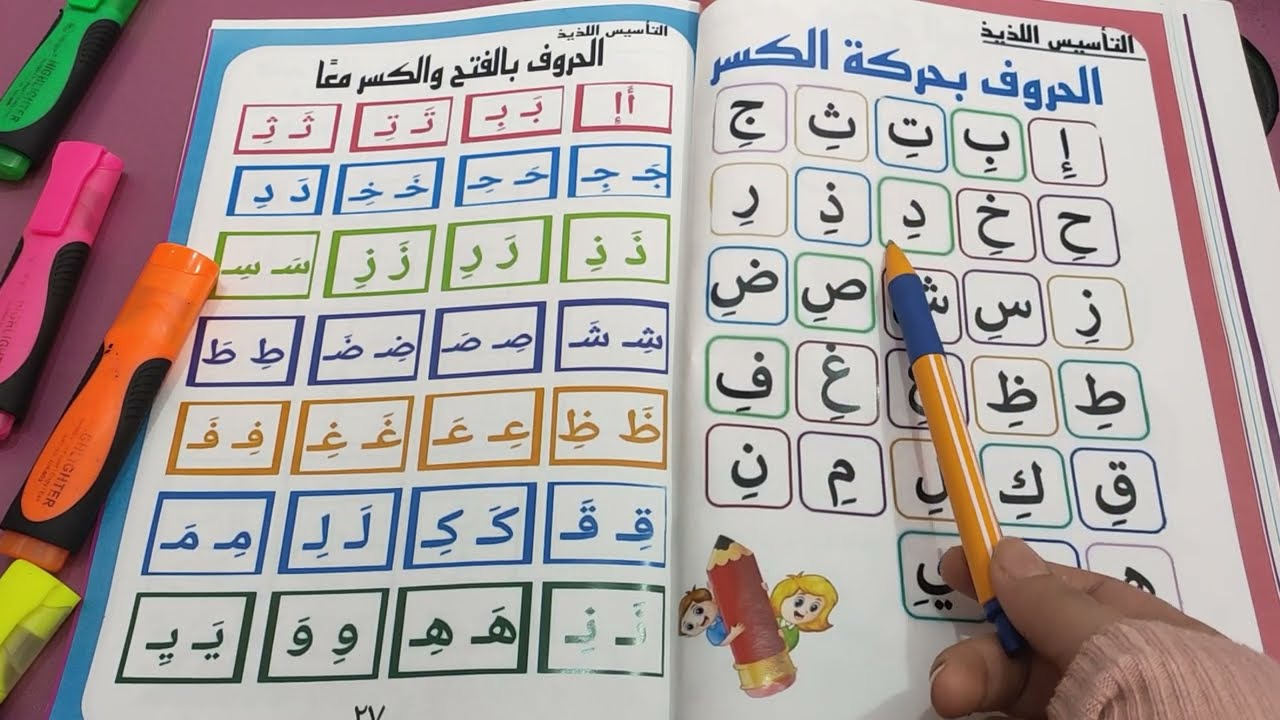 التأسيس اللذيذ
الحروف بحركة الكسر
إِ بِ تِ ثِ جِ
حِ خِ دِ ذِ رِ
زِ سِ شِ صِ ضِ
طِ ظِ عِ غِ فِ
قِ كِ لِ مِ نِ
التأسيس اللذيذ
الحروف بالفتح والكسر معًا
أَ إِ بَـ بِـ تَـ تِـ ثَـ ثِـ
جَـ جِـ حَـ حِـ خَـ خِـ دَ دِ
ذَ ذِ رَ رِ زَ زِ سَـ سِـ
شِـ شَـ صِـ صَـ ضِـ ضَـ طِ طَ
ظَ ظِ عِـ عَـ غَـ غِـ فِـ فَـ
قِـ قَـ كَـ كِـ لَـ لِـ مِـ مَـ
نَـ نِـ هَـ هِـ وِ وَ يَـ يِـ
٢٧
HIGHLIGHTER
HIGHLIGHTER
HIGHLIGHTER